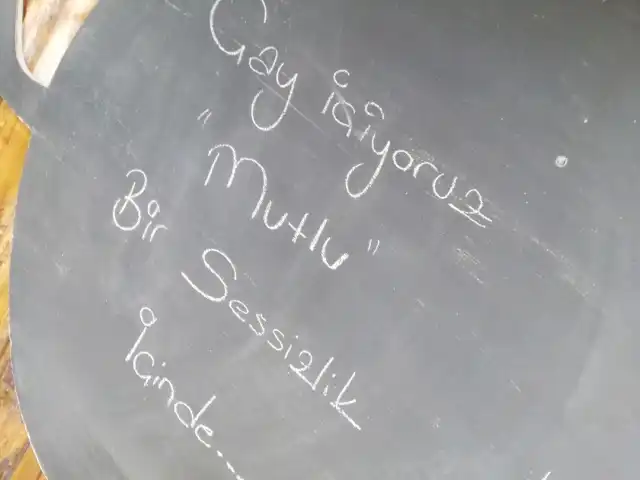 Çay içiyoruz
"Mutlu"
Bir Sessizlik
İçinde....